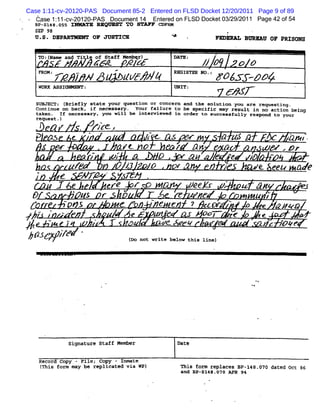 Case 1:11-cv-20120-PAC Document 85-2 Entered on FLSD Docket 12/20/2011 Page 9 of 89
Case 1:11-cv-20120-PAS Document 14 Entered on FLSD Docket 03/29/2011 Page 42 of 54
BP-S148.055 INMATE REQUEST TO STAFF CDFRM
SEP 98
U.S. DEPARTMENT OF JUSTICE FEDERAL BUREAU OF PRISONS
TO:(Name and Title of Staff Member) DATE:
CASE MANAGER PRICE 11/09/2010
FROM: REGISTER NO.:
TRAIAN BUJDUVEANU 80655-004
WORK ASSIGNMENT: UNIT:
7 EAST
SUBJECT: (Briefly state your question or concern and the solution you are requesting.
Continue on back, if necessary. Your failure to be specific may result in no action being
taken. If necessary, you will be interviewed in order to successfully respond to your
request.)
Dear Ms. Price,
Please be kind and advise as per my status at FDC Miami.
As per today, I have not heard any exact answer, or
had a hearing with a DHO, for an alledged violation that
has occurred on 10/13/2010, nor any entries have been made
in the SENTRY SYSTEM
Can I be held here for so many weeks without any charges
or sanctions or should I be returned to Community
Corrections or Home Confinement? According to the Manual
this incident should be expunged as MOOT due to the fact that
the time in which I should have been charged and sanctioned
has expired.
(Do not write below this line)
Signature Staff Member Date
Record Copy - File; Copy - Inmate
(This form may be replicated via WP) This form replaces BP-148.070 dated Oct 86
and BP-S148.070 APR 94